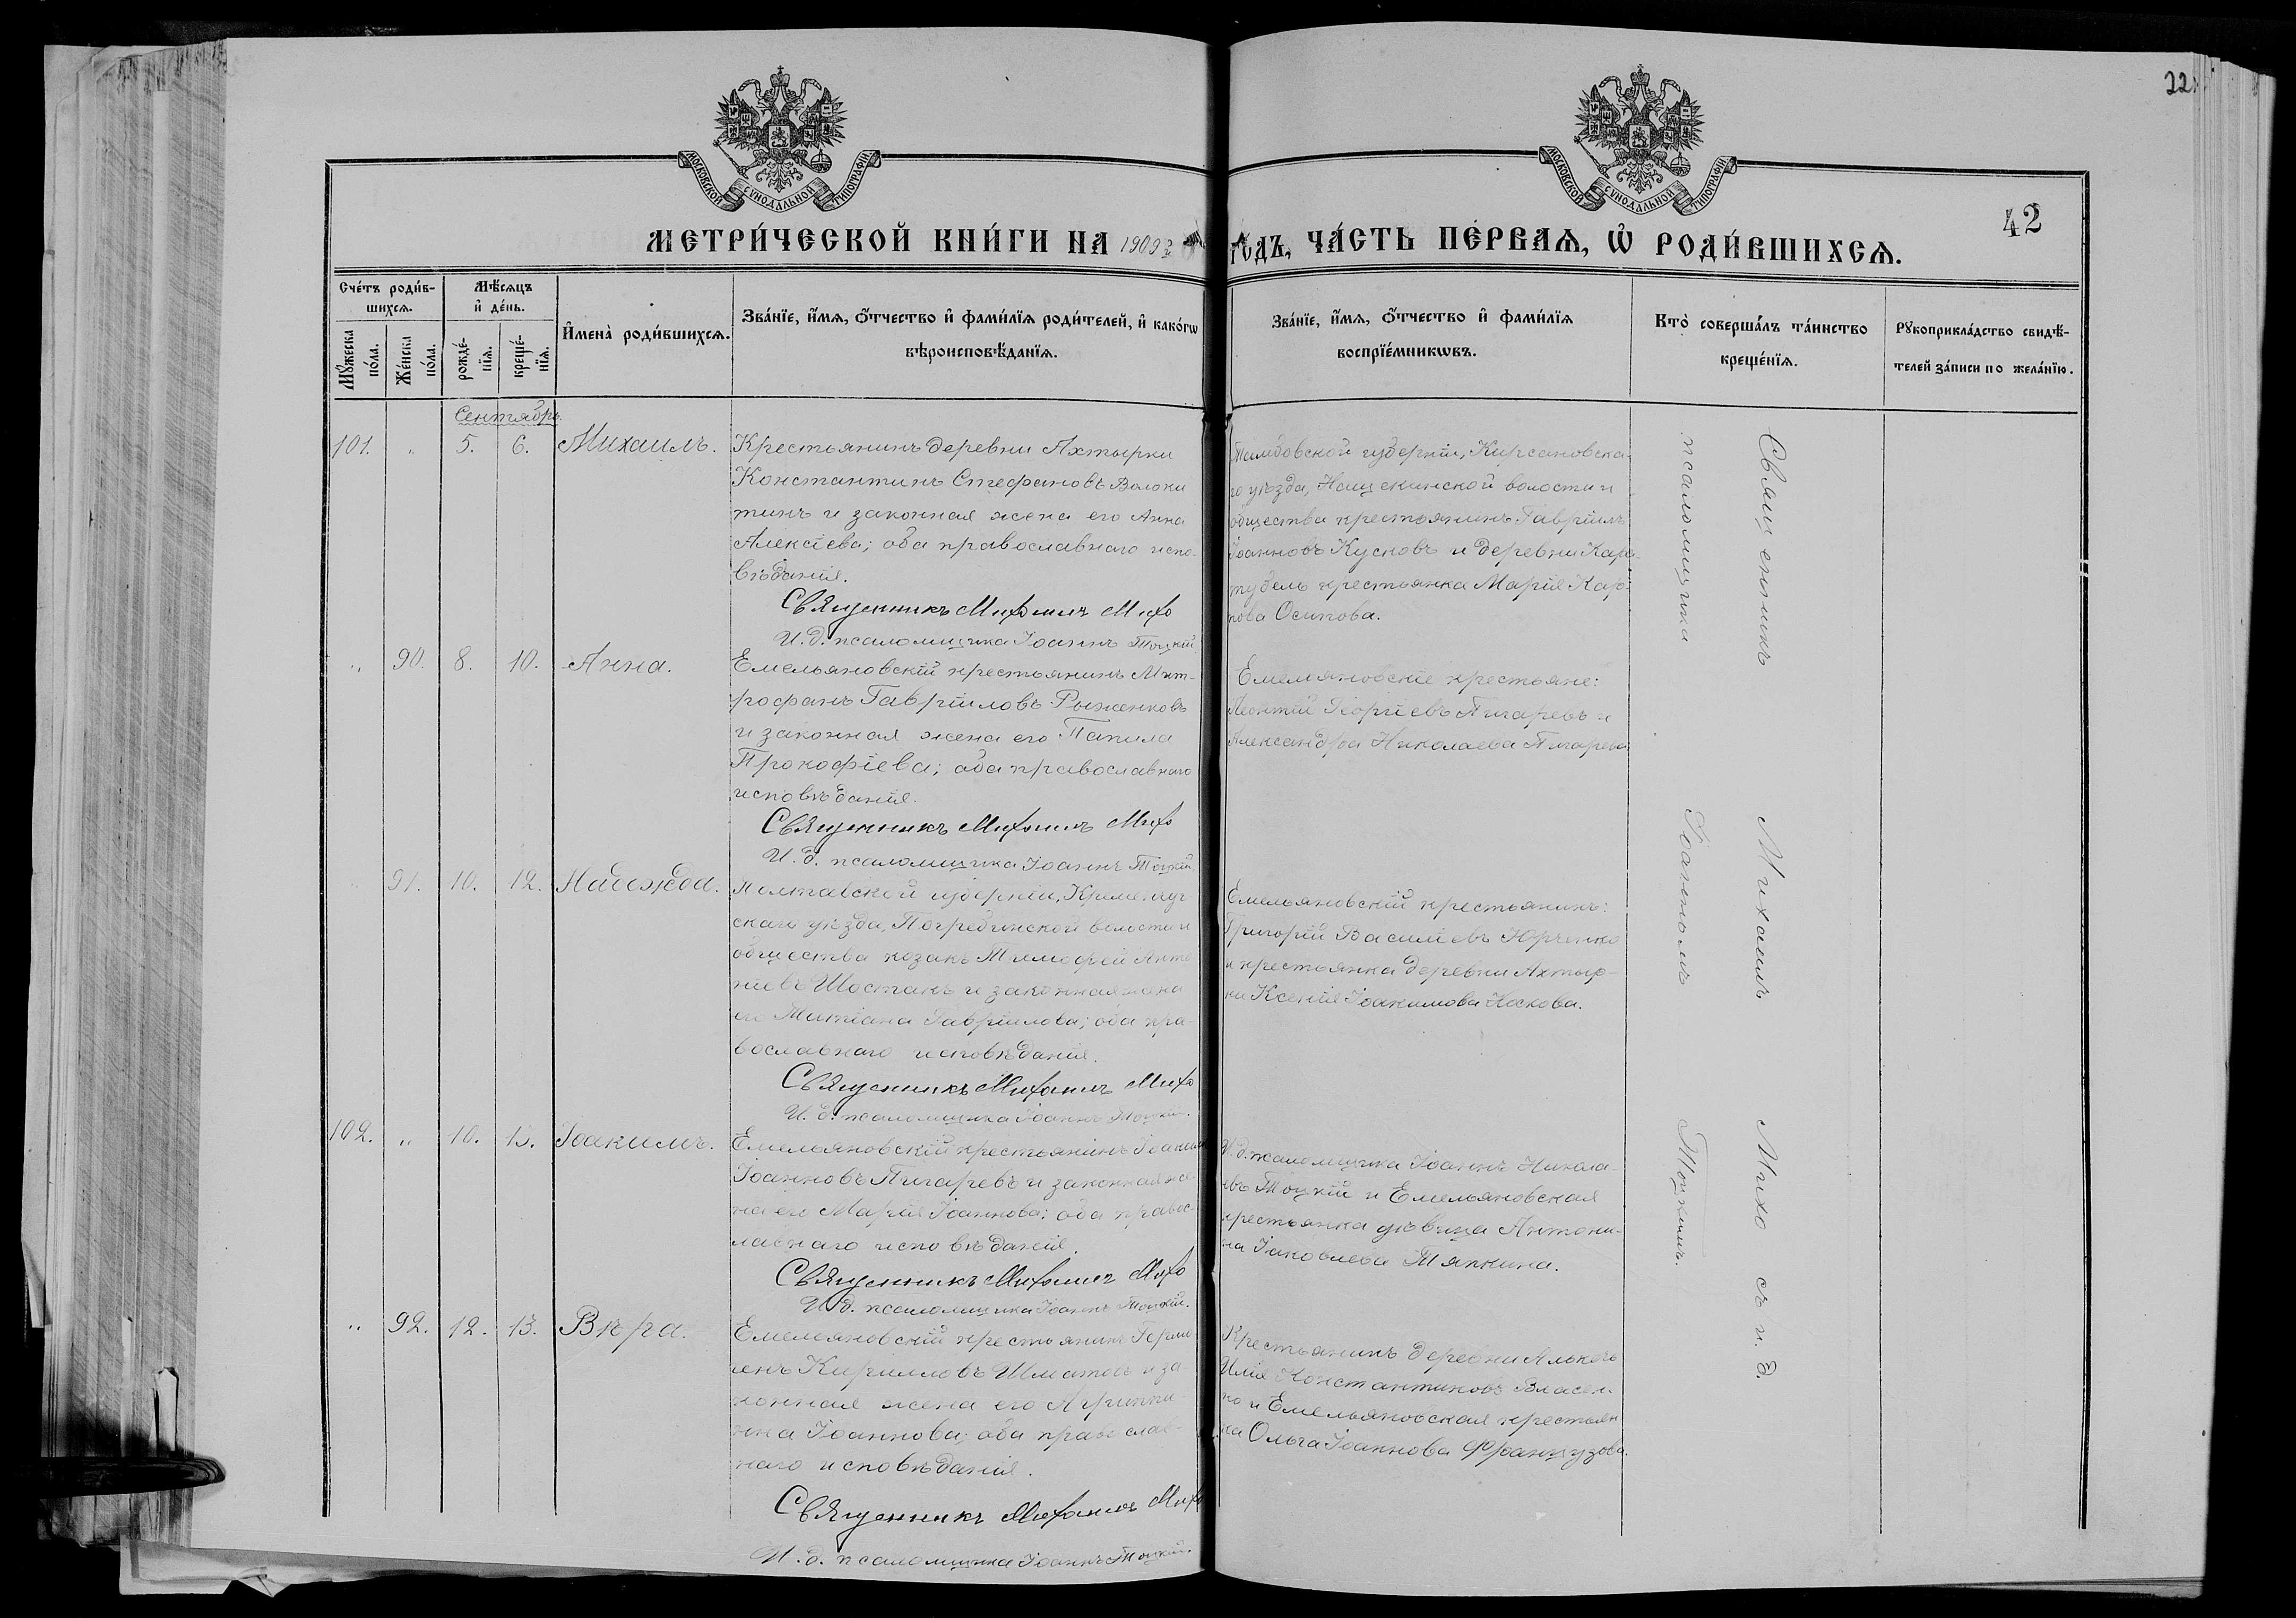 22
МОСКОВСКОЙ СУНОДАЛЬНОЙ ТИПОГРАФІИ
МОСКОВСКОЙ СУНОДАЛЬНОЙ ТИПОГРАФІИ
42
МЕТРИ́ЧЕСКОЙ КНИ́ГИ НА 1909 ГОДЪ, ЧА́СТЬ ПЕ́РВАѦ, Ѡ҆ РОДИ́ВШИХСѦ.
Сче́тъ роди́в-
шихсѧ.
Мꙋжеска по́ла.
Же́нска по́ла.
Мѣ́сѧцъ
и҆ де́нь.
рожде́-
нїѧ.
креще́-
нїѧ.
И҆мена̀ роди́вшихсѧ.
Зва́нїе, и҆́мѧ, ѻ҆́тчество и҆ фами́лїѧ роди́телей, и҆ како́гѡ
вѣроисповѣ́данїѧ.
Зва́нїе, и҆́мѧ, ѻ҆́тчество и҆ фами́лїѧ
воспрїе́мникѡвъ.
Кто̀ соверша́лъ та́инство
креще́нїѧ.
Рꙋкоприкла́дство свидѣ́-
телей за́писи по жела́нїю.
Сентябрь.
101. „ 5. 6. Михаилъ.
Крестьянинъ деревни Ахтырки
Константинъ Стефановъ Волоки
тинъ и законная жена его Анна
Алексіева; оба православнаго испо-
вѣданія.
Священникъ Михаилъ Михо
И. д. псаломщика Іоаннъ Тоцкій.
Тамбовской губерніи, Кирсановска-
го уѣзда, Нащекинской волости и
общества крестьянинъ Гавріилъ
Іоанновъ Кусковъ и деревни Кара-
тубель крестьянка Марія Кар-
пова Осипова.
„ 90. 8. 10. Анна.
Емельяновскій крестьянинъ Мит-
рофанъ Гавріиловъ Рыженковъ
и законная жена его
Прокофіева; оба православнаго
исповѣданія.
Священникъ Михаилъ Михо
И. д. псаломщика Іоаннъ Тоцкій.
Емельяновскіе крестьяне:
Леонтій Георгіевъ Пигаревъ и
Александра Николаева Пигарева.
91. 10. 12. Надежда.
Полтавской губерніи, Кременчуг
скаго уѣзда, Погребинской волости и
общества козакъ Тимофей Анто
ніевъ Шостакъ и законная жена
его Татіана Гавріилова; оба пра-
вославнаго исповѣданія.
Священникъ Михаилъ Михо
И. д. псаломщика Іоаннъ Тоцкій.
Емельяновскій крестьянинъ:
Григорій Василіевъ Юрченко
и крестьянка деревни Ахтыр-
ки Ксенія Іоакимова Носкова.
102. „ 10. 13. Іоакимъ.
Емельяновскій крестьянинъ Іоакимъ
Іоанновъ Пигаревъ и законная же-
на его Марія Іоаннова; оба правос-
лавнаго исповѣданія.
Священникъ Михаилъ Михо
И. д. псаломщика Іоаннъ Тоцкій.
И. д. псаломщика Іоаннъ Никола-
евъ Тоцкій и Емельяновская
крестьянка дѣвица Антони-
на Іаковлева Тяпкина.
„ 92. 12. 13. Вѣра.
Емельяновскій крестьянинъ
Кирилловъ Шматовъ и за-
конная жена его Агриппи-
нна Іоаннова; оба православ-
наго исповѣданія.
Священникъ Михаилъ Михо
И. д. псаломщика Іоаннъ Тоцкій.
Крестьянинъ деревни
Илія Константиновъ Власен-
ко и Емельяновская крестьян
ка Ольга Іоаннова Французова.
Священникъ Михаилъ Михо съ и. д.
псаломщика Іоанномъ Тоцкимъ.